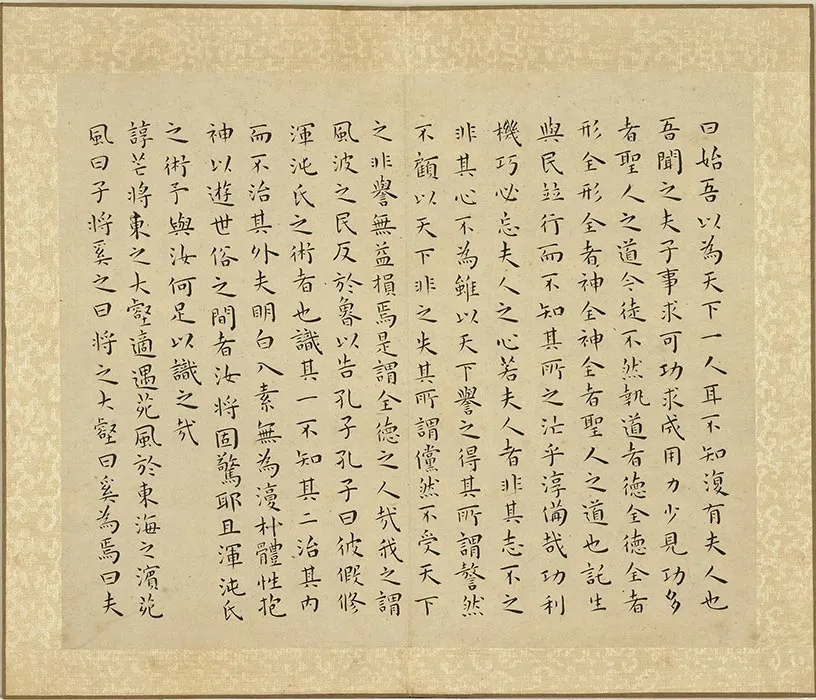 曰始吾以為天下一人耳不知復有夫人也
吾聞之夫子事求可功求成用力少見功多
者聖人之道今徒不然執道者德全德全者
形全形全者神全神全者聖人之道也託生
與民竝行而不知其所之汒乎淳備哉功利
機巧必忘夫人之心若夫人者非其志不之
非其心不為雖以天下譽之得其所謂謷然
不顧以天下非之失其所謂儻然不受天下
之非譽無益損焉是謂全德之人哉我之謂
風波之民反於魯以告孔子孔子曰彼假修
渾沌氏之術者也識其一不知其二治其內
而不治其外夫明白入素無為復朴體性抱
神以遊世俗之間者汝將固驚耶且渾沌氏
之術予與汝何足以識之哉
諄芒將東之大壑適遇苑風於東海之濱苑
風曰子將奚之曰將之大壑曰奚為焉曰夫